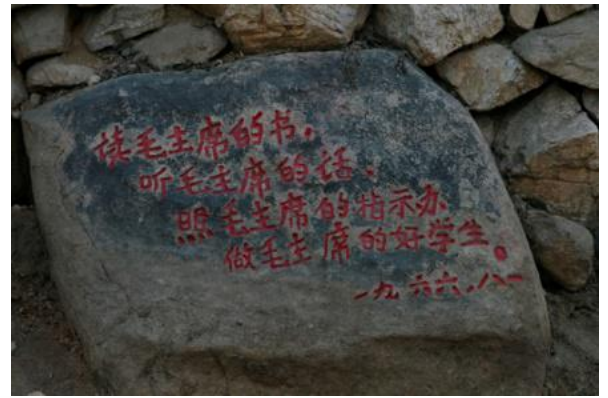 读毛主席的书，
听毛主席的话、
照毛主席的指示办
做毛主席的好学生。
一九六六、八一